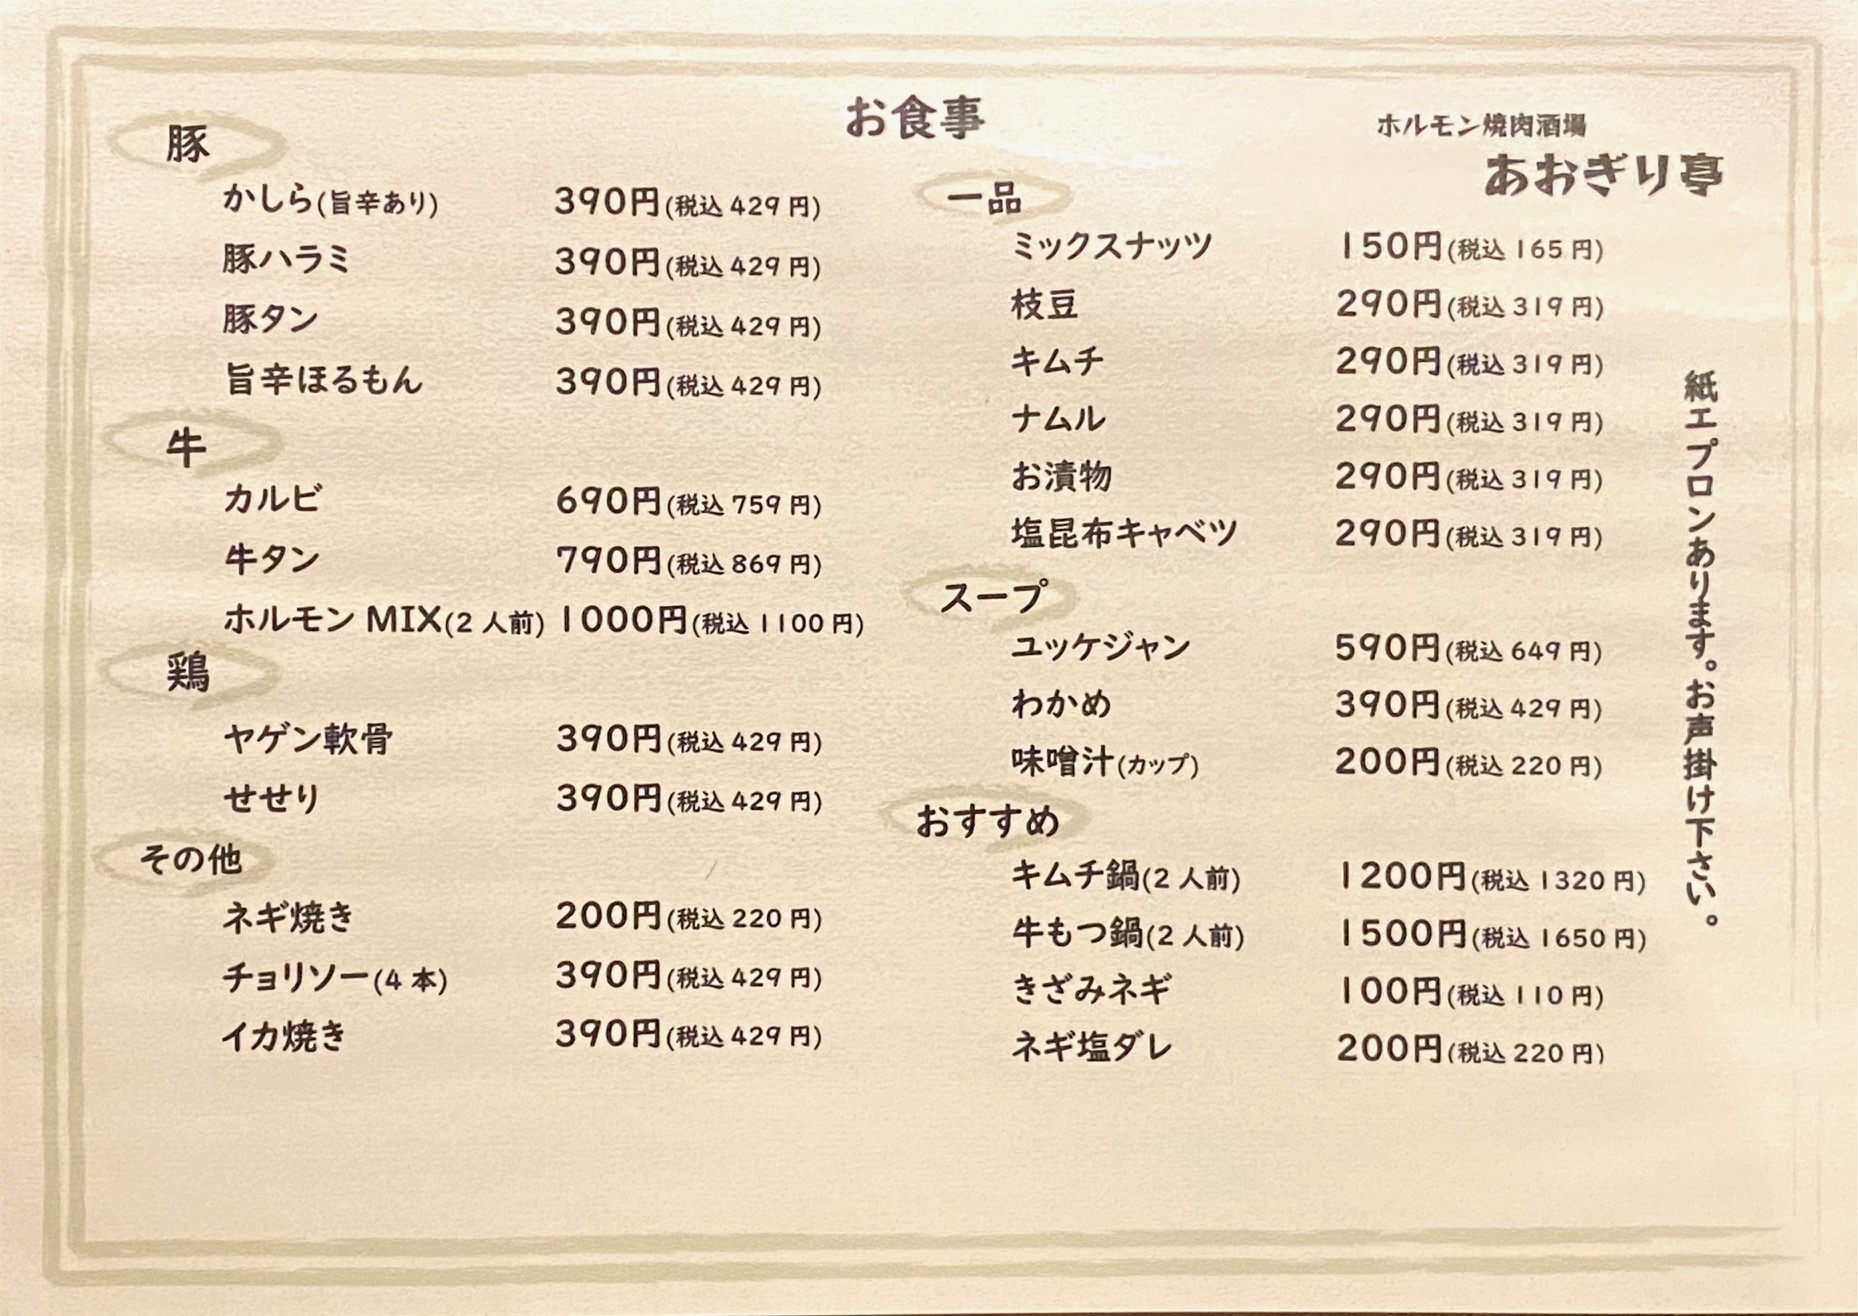 お食事
ホルモン焼肉酒場
あおぎり亭
豚
かしら(旨辛あり) 390円(税込429円)
豚ハラミ 390円(税込429円)
豚タン 390円(税込429円)
旨辛ほるもん 390円(税込429円)
牛
カルビ 690円(税込759円)
牛タン 790円(税込869円)
ホルモンMIX(2人前) 1000円(税込1100円)
鶏
ヤゲン軟骨 390円(税込429円)
せせり 390円(税込429円)
その他
ネギ焼き 200円(税込220円)
チョリソー(4本) 390円(税込429円)
イカ焼き 390円(税込429円)
一品
ミックスナッツ 150円(税込165円)
枝豆 290円(税込319円)
キムチ 290円(税込319円)
ナムル 290円(税込319円)
お漬物 290円(税込319円)
塩昆布キャベツ 290円(税込319円)
スープ
ユッケジャン 590円(税込649円)
わかめ 390円(税込429円)
味噌汁(カップ) 200円(税込220円)
おすすめ
キムチ鍋(2人前) 1200円(税込1320円)
牛もつ鍋(2人前) 1500円(税込1650円)
きざみネギ 100円(税込110円)
ネギ塩ダレ 200円(税込220円)
紙エプロンあります。お声掛け下さい。